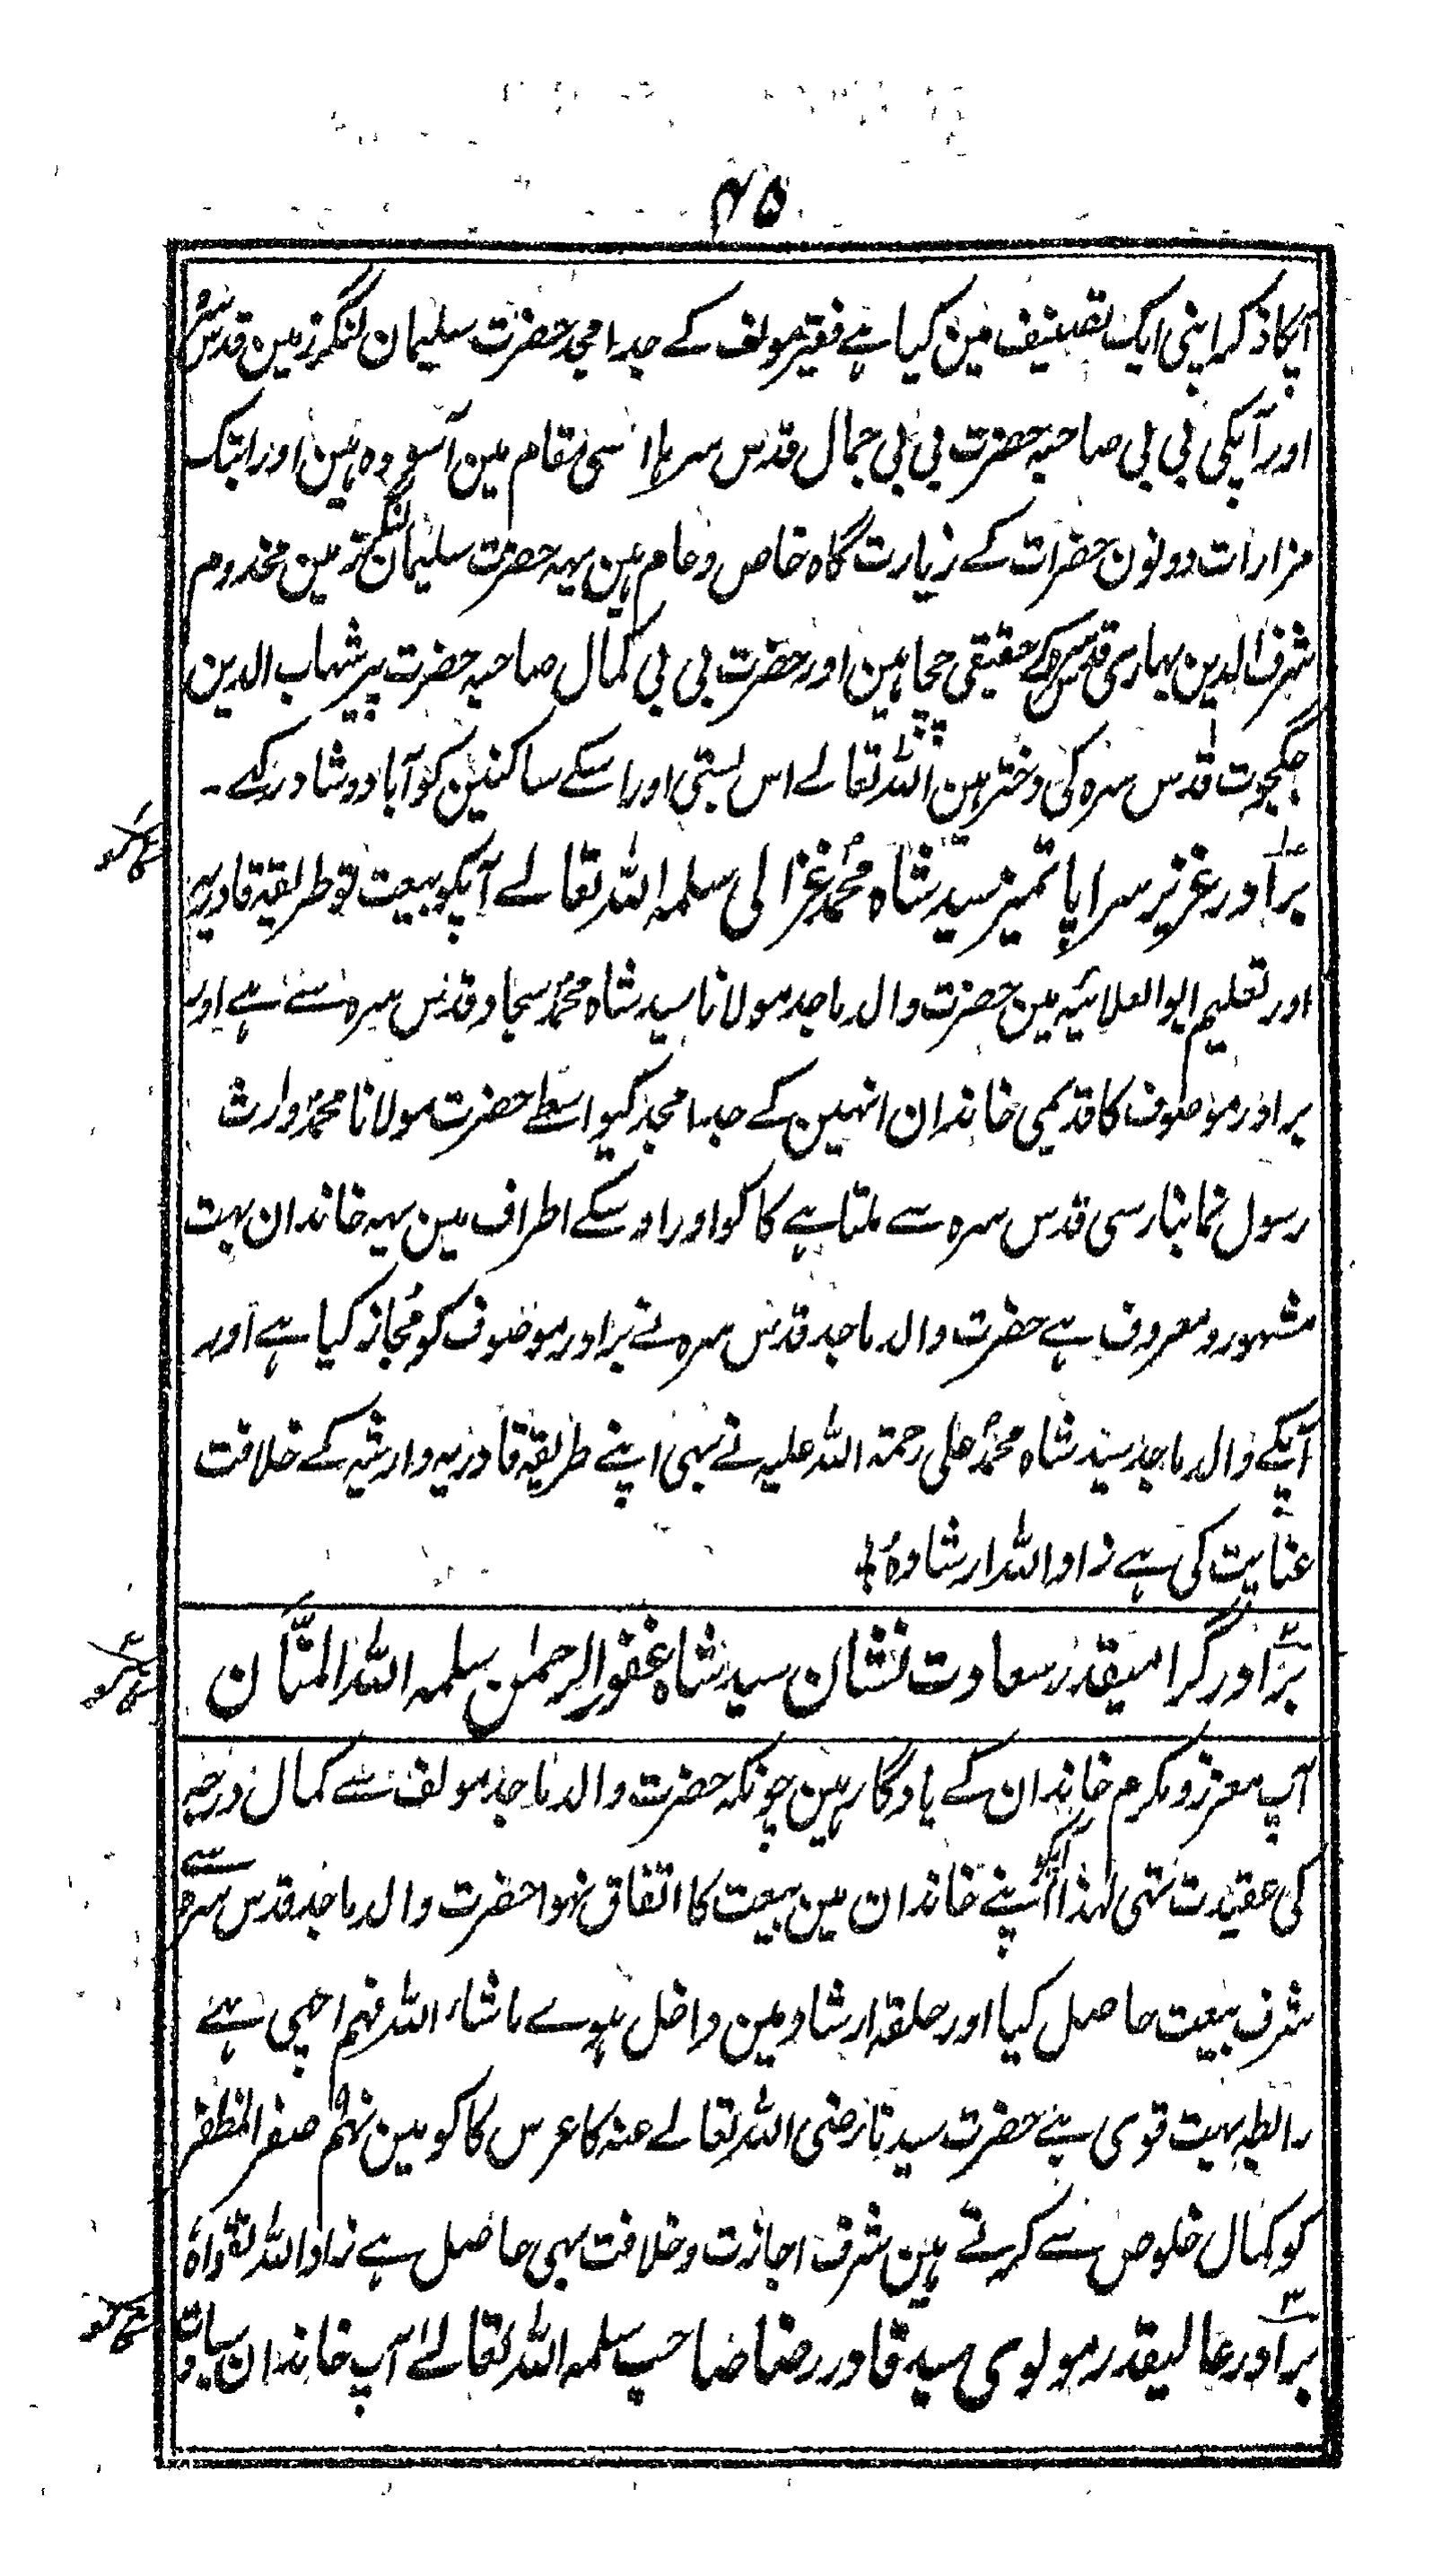 ۴۵
آپکا ذکر اپنی ایک تصنیف مین کیا ہے فقیر مولف کے جد امجد حضرت سلیمان لنگر زمین قدس سرہ
اور آپکی بی بی صاحبہ حضرت بی بی جمال قدس سرہا اسی مقام مین آسودہ ہین اور ابتک
مزارات دونون حضرات کے زیارت گاہ خاص و عام ہین یہہ حضرت سلیمان لنگر زمین مخدوم
شرف الدین بہاری قدس سرہ کے حقیقی چچا ہین اور حضرت بی بی کمال صاحبہ حضرت پیر شہاب الدین
جگجوت قدس سرہ کی دختر ہین اللہ تعالے اس بستی اور اسکے ساکنین کو آباد و شاد رکہے ۔
برادر عزیز سراپا تمیز سید شاہ محمد غزالی سلمہ اللہ تعالے آپکو بیعت تو طریقہ قادریہ
اور تعلیم ابو العلائیہ مین حضرت والد ماجد مولانا سید شاہ محمد سجاد قدس سرہ سے ہے اور
برادر موصوف کا قدیمی خاندان انہین کے جد امجد کیواسطے حضرت مولانا محمد وارث
رسول نما بنارسی قدس سرہ سے ملتا ہے کاکو اور اوسکے اطراف مین یہہ خاندان بہت
مشہور و معروف ہے حضرت والد ماجد قدس سرہ نے برادر موصوف کو مجاز کیا ہے اور
آپکے والد ماجد سید شاہ محمد علی رحمۃ اللہ علیہ نے بہی اپنے طریقہ قادریہ وارثیہ کے خلافت
عنایت کی ہے زاد اللہ ارشادہ
برادر گرامیقدر سعادت نشان سید شاہ غفور الرحمٰن سلمہ اللہ المنّان
آپ معزز و مکرم خاندان کے یادگار ہین چونکہ حضرت والد ماجد مولف سے کمال درجہ
کی عقیدت تہی لہذا آپکو اپنے خاندان مین بیعت کا اتفاق نہوا حضرت والد ماجد قدس سرہ سے
شرف بیعت حاصل کیا اور حلقہ ارشاد مین داخل ہوے ماشاء اللہ فہم اچہی ہے
رابطہ بہت قوی ہے حضرت سیدنا رضی اللہ تعالے عنہ کا عرس کاکو مین نہم ۹ صفر المظفر
کو کمال خلوص سے کرتے ہین شرف اجازت و خلافت بہی حاصل ہے زاد اللہ تقواہ
برادر عالیقدر مولوی سید قادر رضا صاحب سلمہ اللہ تعالے آپ خاندان سیادت